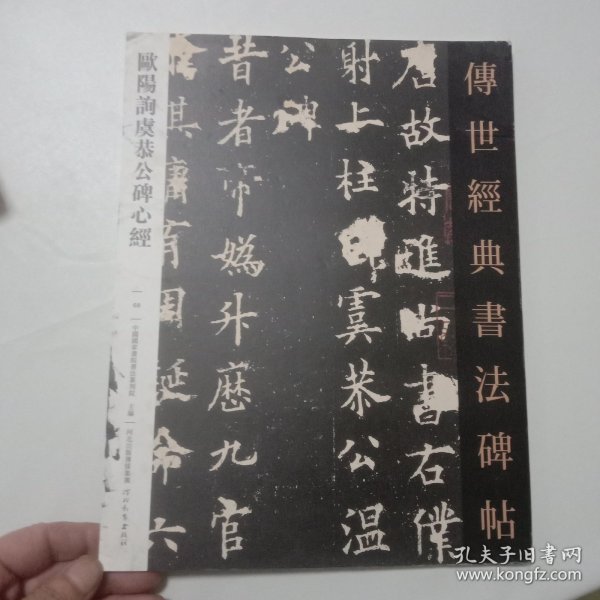 傳世經典書法碑帖
唐故特進尚書右僕
射上柱國虞恭公溫
公碑
昔者帝媯升歷九官
命六
歐陽詢虞恭公碑心經
68
中國國家畫院書法篆刻院 主編
河北出版傳媒集團
河北教育出版社
孔夫子旧书网
www.kongfz.com